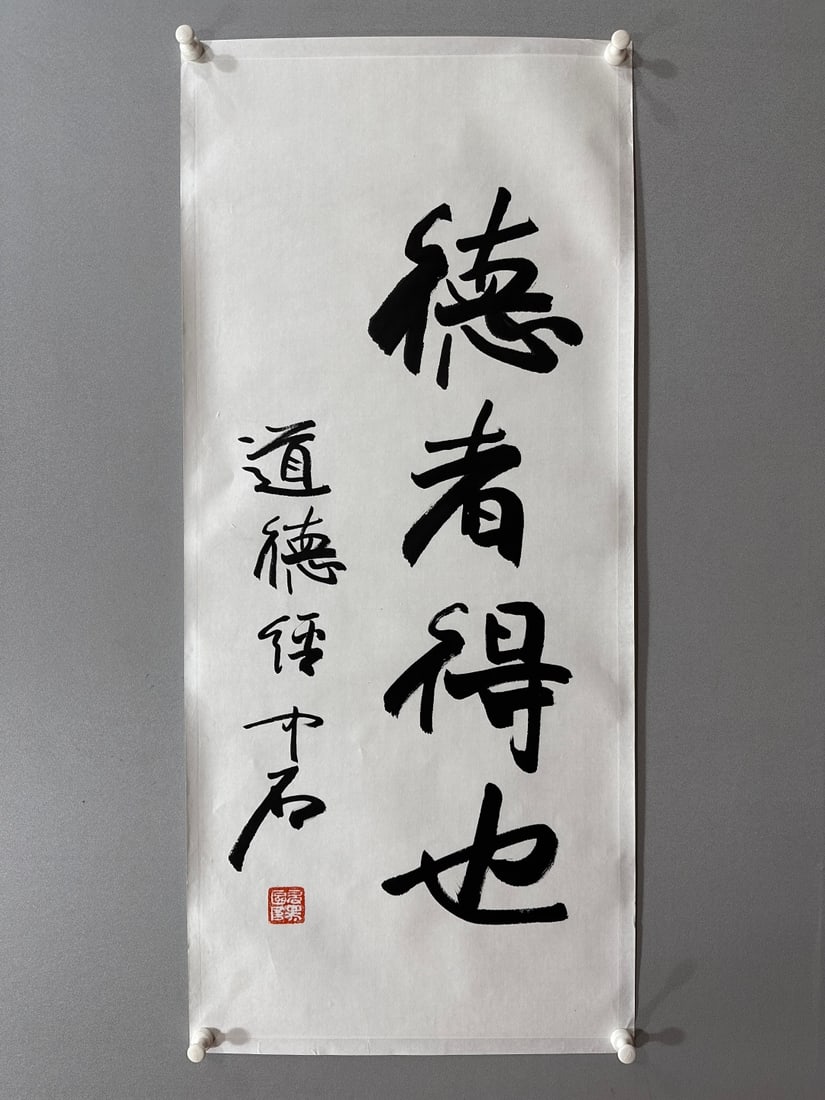 德者得也
道德經中石